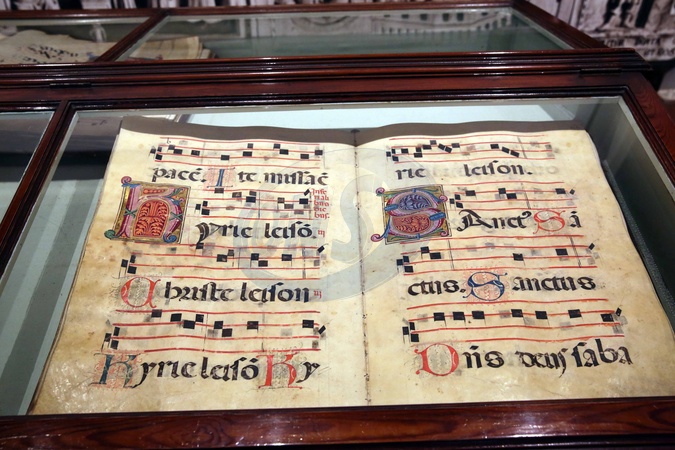 pacē. Ite missa ē
Kyrie leisō iij
Christe leison iij
Kyrie leisō Ky
rie leison.
Sanctꝰ Sā
ctus. Sanctus
Dn̄s deus saba